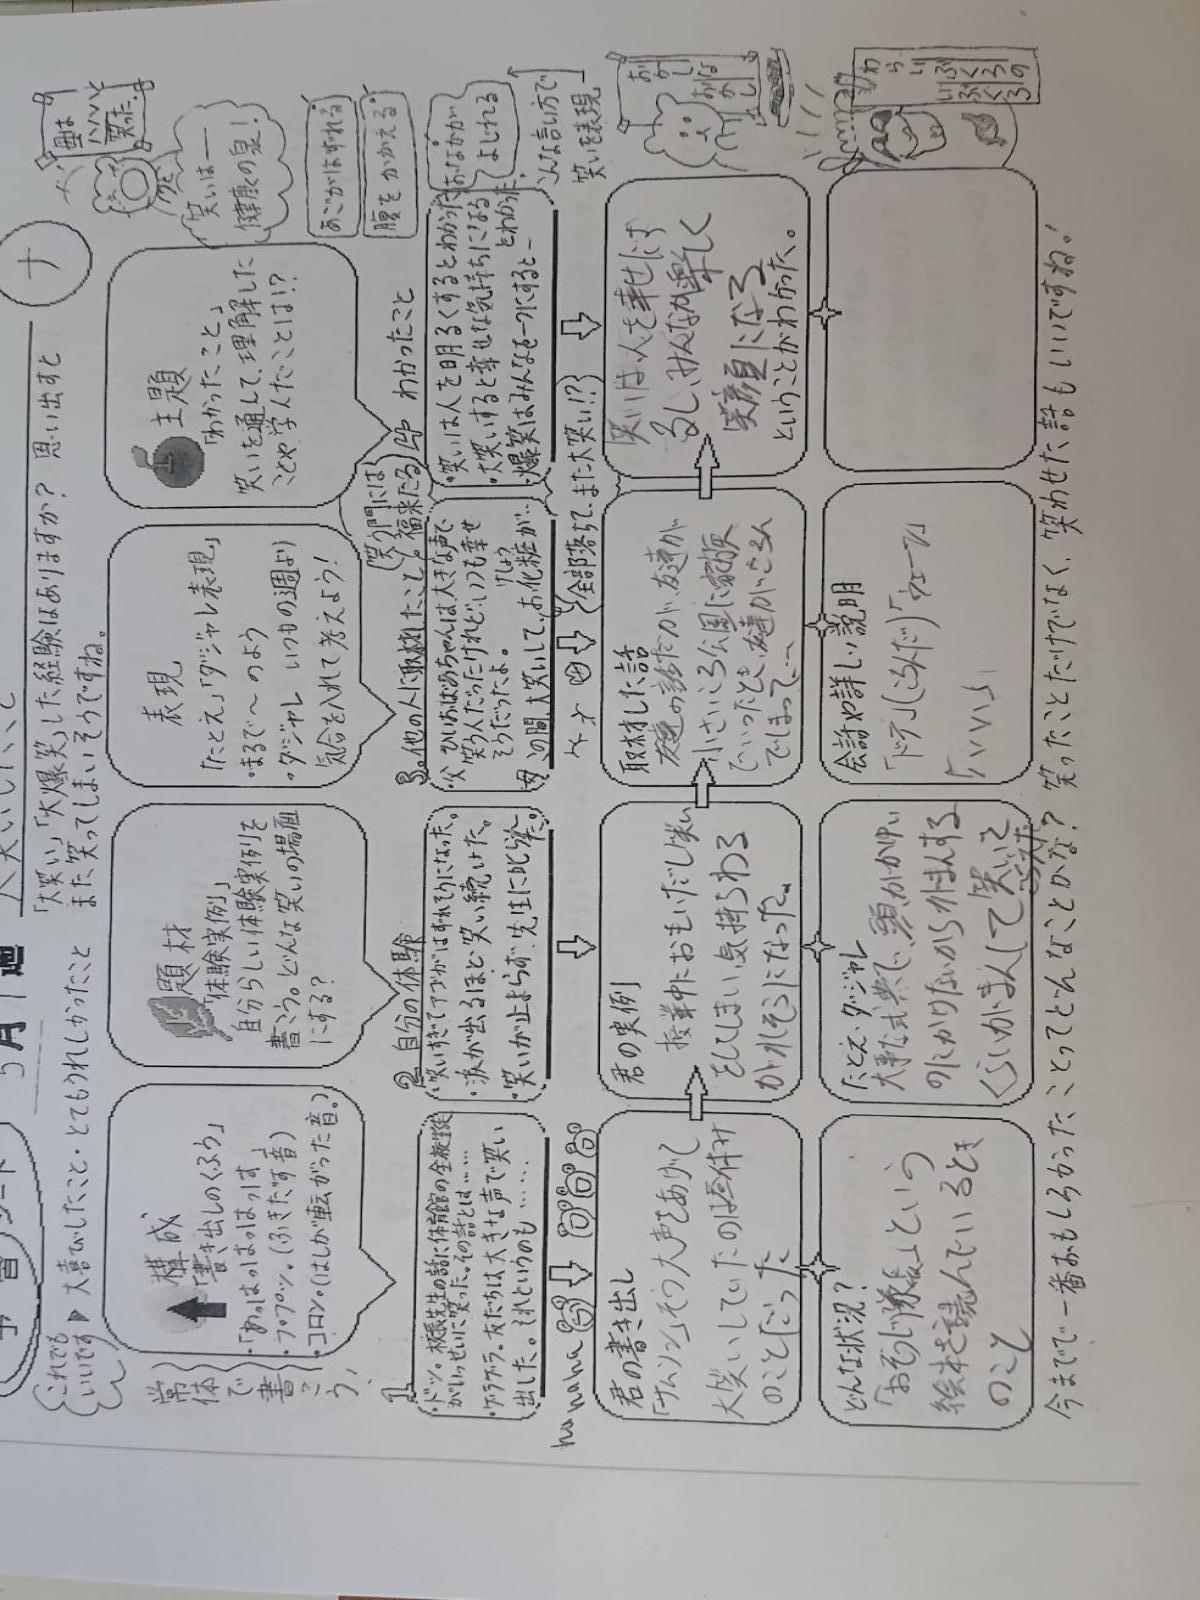 5月1週
「大笑い」「大爆笑」した経験はありますか? 思い出すと
また笑ってしまいそうですね。
これでも
いいです
大喜びしたこと・とてもうれしかったこと
常体で書こう!
構成
「書き出しのくふう」
・「あっはっはっはっす」
・プププッ。(ふきだす音)
・コロン。(はしが転がった音。)
題材
「体験実例」
自分らしい体験実例を
書こう。どんな笑いの場面
にする?
表現
「たとえ」「ダジャレ表現」
・まるで〜のよう
・ダジャレ いつもの週より
気合を入れて考えよう!
主題
「わかったこと」
笑いを通して、理解した
ことや学んだことは!?
ナ
ハハハと
笑った。
笑いは――
健康の泉!
あごがはずれる
腹をかかえる
おなかが
よじれる
こんな言い方で
笑いを表現
1
・ドッ。校長先生の話に体育館の全校生徒
がいっせいに笑った。その話とは……
・ゲラゲラ。友だちは大きな声で笑い
出した。それというのも……
2 自分の体験
・笑いすぎてアゴがはずれそうになった。
・涙が出るほど笑い続けた。
・笑いが止まらず、先生に叱られた。
3。他の人に取材したこと。
・父 ひいおばあちゃんは、大きな声で
笑う人だったけれど、いつも幸せ
そうだったよ。
母 この間、大笑いして、お化粧が…
全部落ちて、また大笑い!?
笑う門には
福来たる
4 わかったこと
・笑いは人を明るくするとわかった
・大笑いすると幸せな気持ちになる
とわかった。
・爆笑はみんなを一つにすると―
hahaha
君の書き出し
大笑いしていたのは昼休み
のことだった
君の実例
授業中におもいだし笑い
をしてしまい、気持ちわる
がられそうになった。
取材した話
友達の話だが、友達が
小さいころ公園に家族
でいったとき、友達がころん
でしまって、
笑いは、人を幸せにす
るし、みんなが楽しく
笑顔になる
ということがわかった。
どんな状況?
「おそうじ隊長」という
絵本を読んでいるとき
のこと
たとえ・ダジャレ
大事な式典で、頭がかゆい
のにかけないから
くらいがまんして笑いを
こらえた
会話や詳しい説明
今までで一番おもしろかったことってどんなことかな? 笑ったことだけでなく、笑わせた話もいいですね!